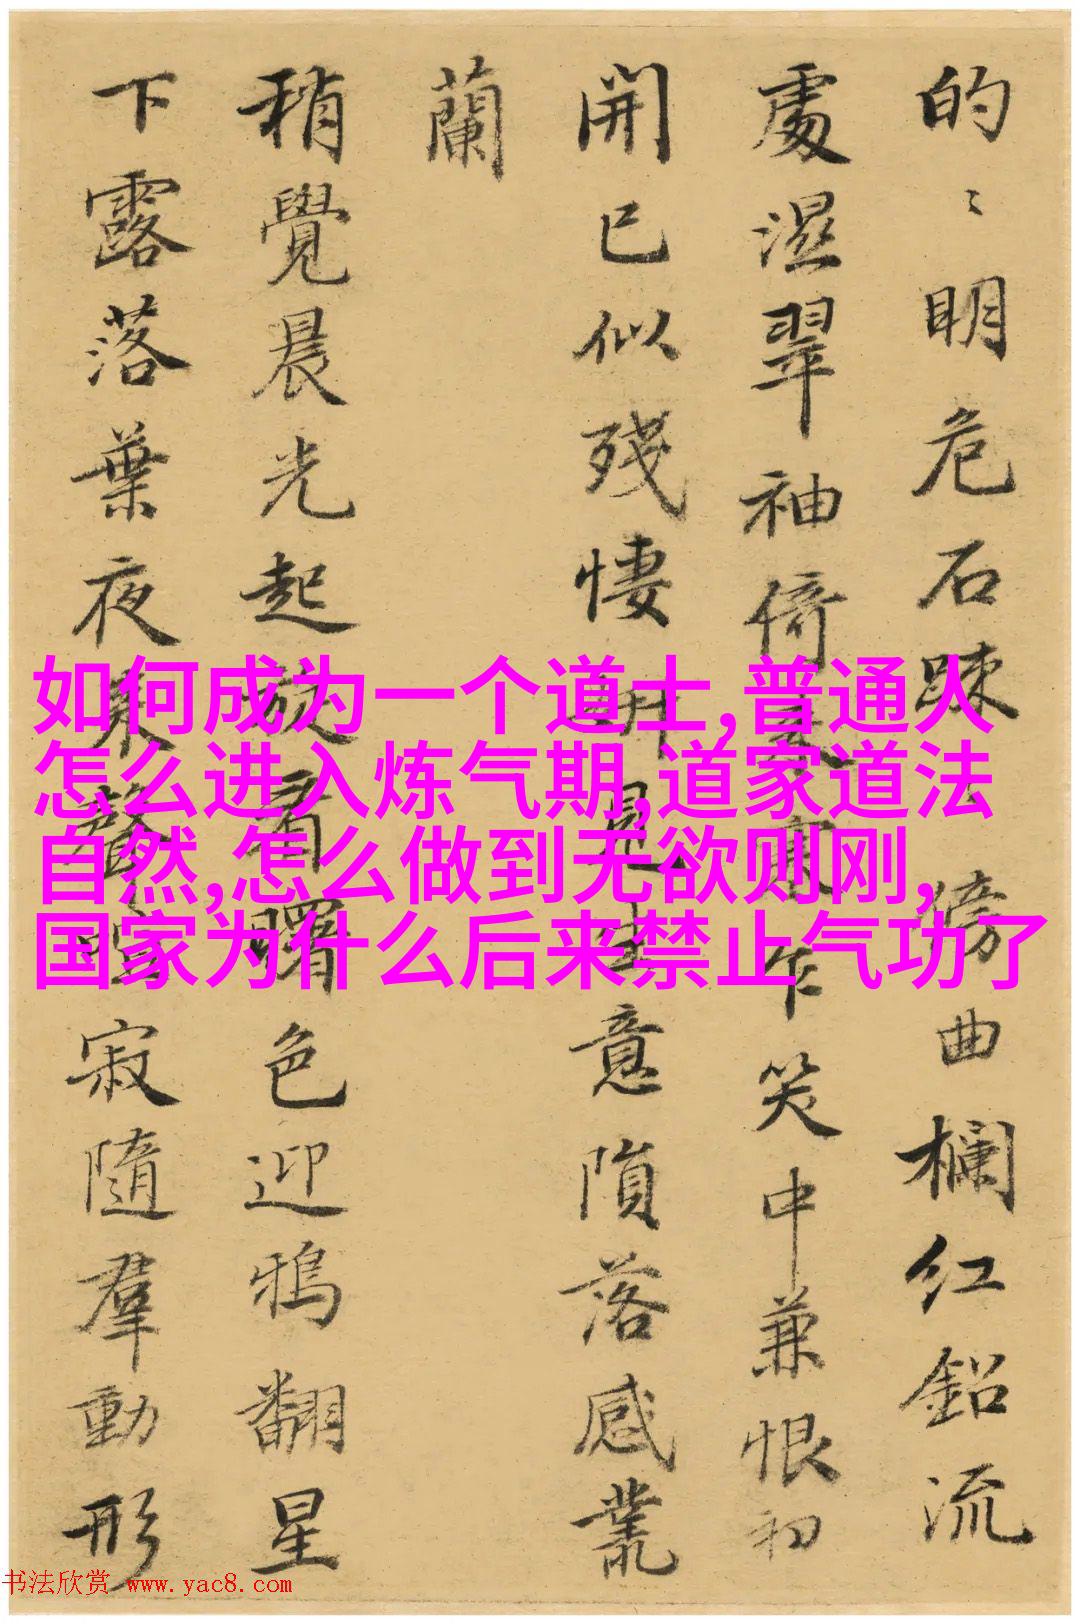 的〻明危石疎〻傍曲欄红鉛流
處濕翠袖倚
乍笑中兼恨初
開已似殘悽
是生意隕落感叢
蘭
稍覺晨光起
看曙色迎鴉翻星
下露落葉夜
聲
寂隨羣動形
如何成为一个道士,普通人
怎么进入炼气期,道家道法
自然,怎么做到无欲则刚,
国家为什么后来禁止气功了
书法欣赏 www.yac8.com